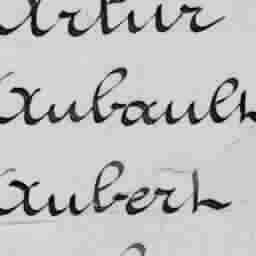 Artur
Aubault
Aubert